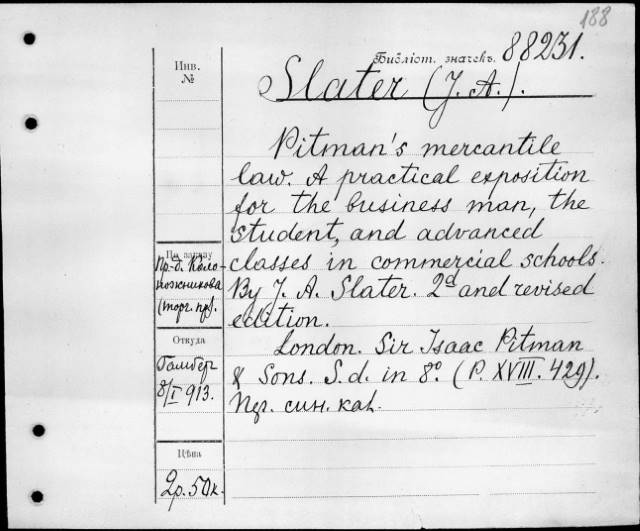 188
Библіот. значекъ. 88231.
Инв.
№
Slater (J. A.).
Pitman's mercantile
law. A practical exposition
for the business man, the
student, and advanced
classes in commercial schools.
By J. A. Slater. 2d and revised
edition.
London. Sir Isaac Pitman
& Sons. S. d. in 8°. (P. XVIII. 429).
син. кал.
По заказу
Пр-д.
(торг. пр).
Откуда
Гамбер
8/I 913.
Цѣна
2р. 50к.